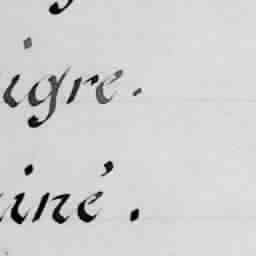 igre.
iné.